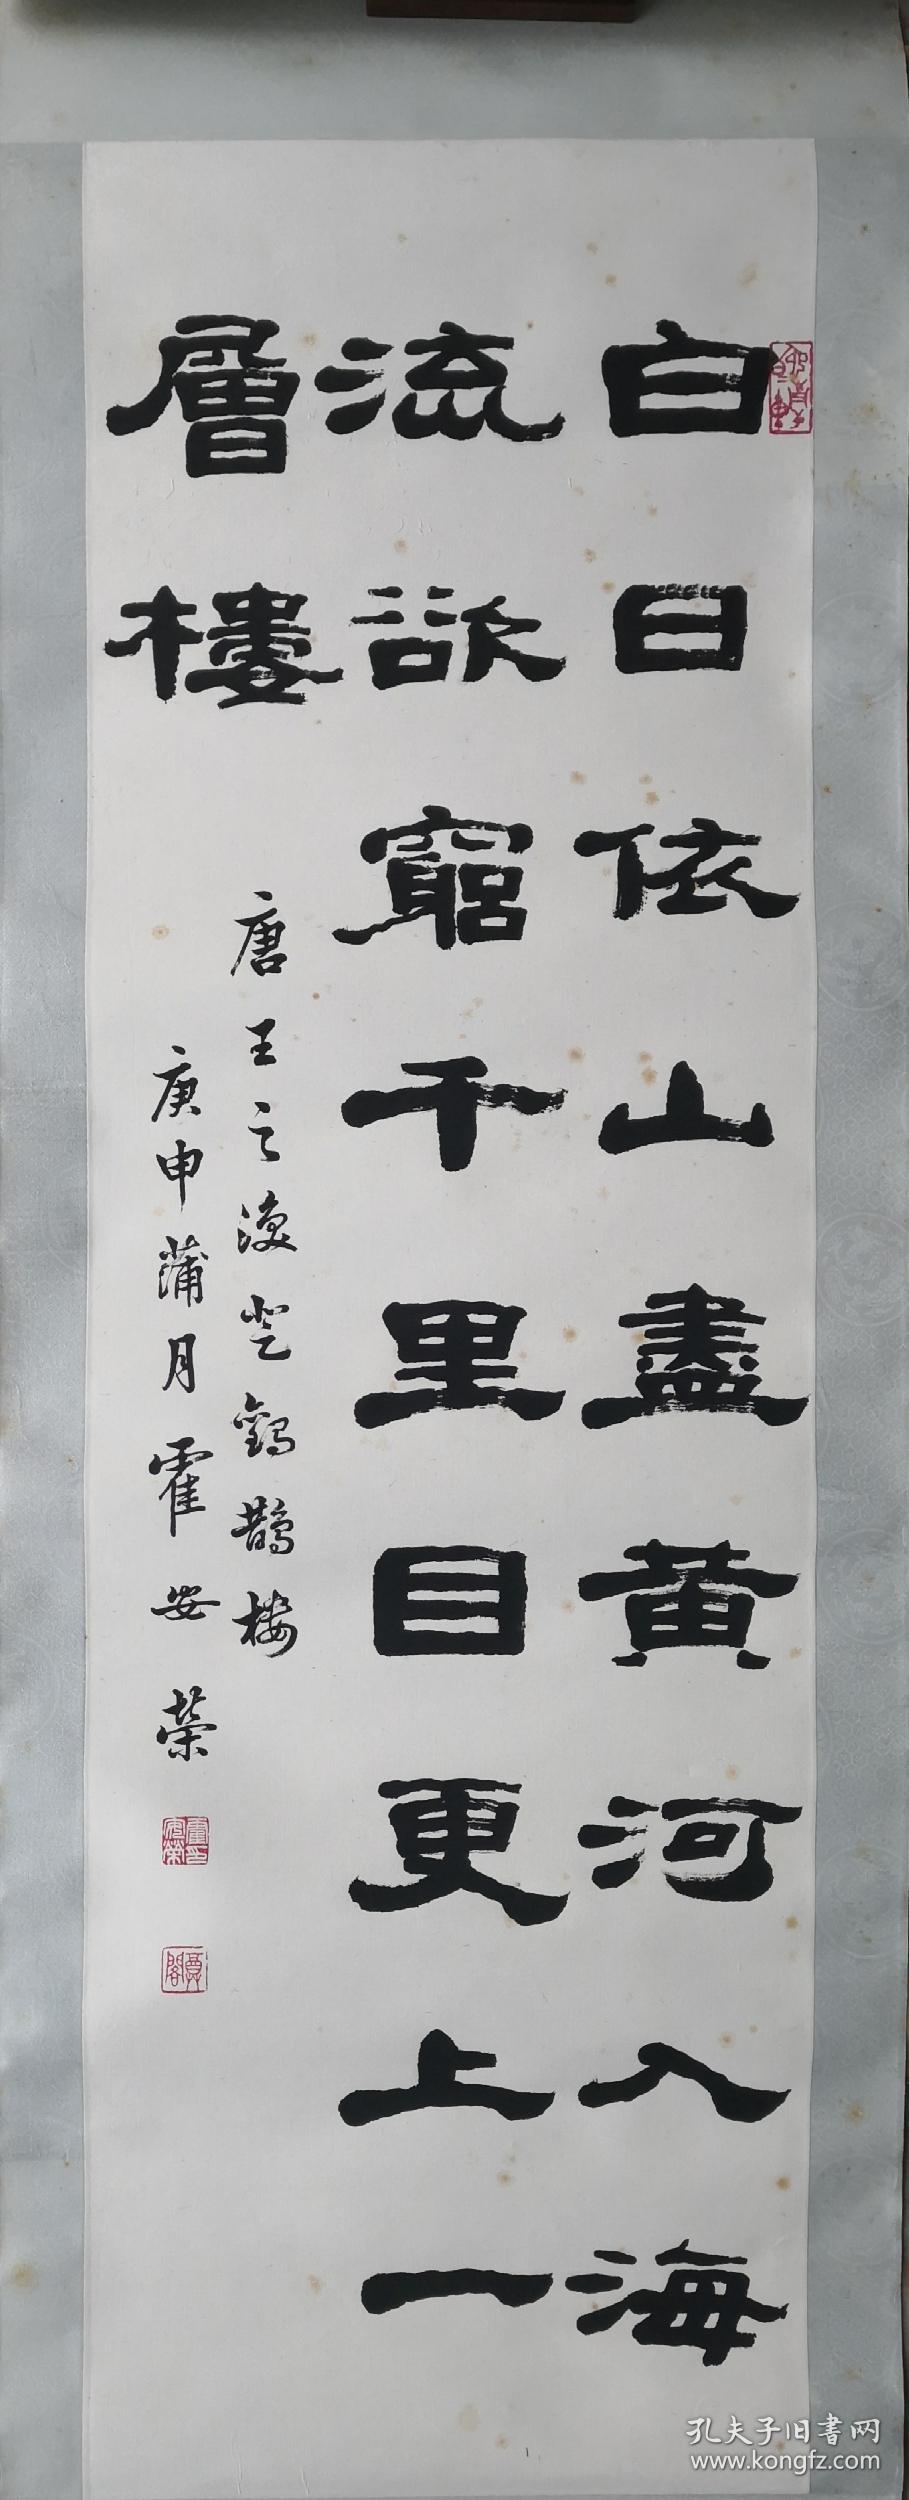 白日依山盡黄河入海
流欲窮千里目更上一
層樓
唐王之渙登鸛鵲樓
庚申蒲月霍安榮
孔夫子旧书网
www.kongfz.com